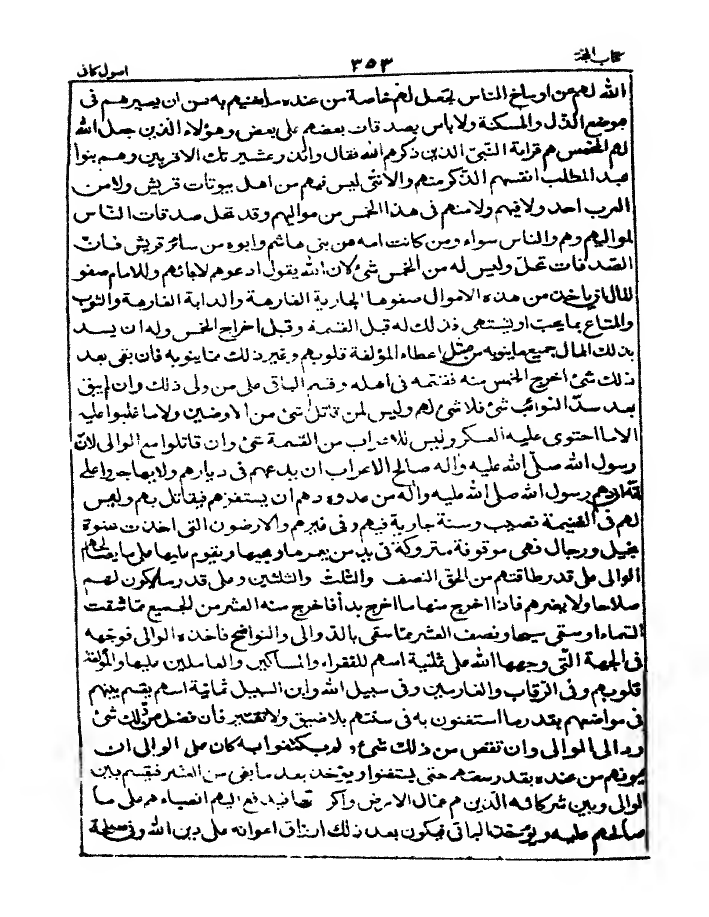 كتاب الحجة
٣٥٣
اصول كافى
الله لهم عن اوساخ الناس فجعل لهم خاصة من عنده ما يغنيهم به من ان يصيرهم فى
موضع الذل والمسكنة ولا باس بصدقات بعضهم على بعض وهؤلاء الذين جعل الله
لهم الخمس هم قرابة النبىّ الذين ذكرهم الله فقال وانذر عشيرتك الاقربين وهم بنوا
عبد المطلب انفسهم الذكر منهم والانثى ليس فيهم من اهل بيوتات قريش ولا من
العرب احد ولا فيهم ولا منهم فى هذا الخمس من مواليهم وقد تحل صدقات الناس
لمواليهم وهم والناس سواء ومن كانت امه من بنى هاشم وابوه من سائر قريش فان
الصدقات تحل وليس له من الخمس شئ لان الله يقول ادعوهم لابائهم وللامام صفو
المال ان ياخذ من هذه الاموال صفوها الجارية الفارهة والدابة الفارهة والثوب
والمتاع بما يحب او يشتهى فذلك له قبل القسمة وقبل اخراج الخمس وله ان يسد
بذلك المال جميع ما ينوبه من مثل اعطاء المؤلفة قلوبهم وغير ذلك مما ينوبه فان بقى بعد
ذلك شئ اخرج الخمس منه فقسمه فى اهله وقسم الباقى على من ولى ذلك وان لم يبق
بعد سدّ النوائب شئ فلا شئ لهم وليس لمن قاتل شئ من الارضين ولا ما غلبوا عليه
الا ما احتوى عليه العسكر وليس للاعراب من القسمة شئ وان قاتلوا مع الوالى لانّ
رسول الله صلّى الله عليه واله صالح الاعراب ان يدعهم فى ديارهم ولا يهاجروا على
انه ان دهم رسول الله صلى الله عليه واله من عدوه دهم ان يستفزهم فيقاتل بهم وليس
لهم فى الغنيمة نصيب وسنة جارية فيهم وفى غيرهم والارضون التى اخذت عنوة
بخيل ورجال فهى موقوفة متروكة فى يد من يعمرها ويحييها ويقوم عليها على ما يصالحهم
الوالى على قدر طاقتهم من الحق النصف والثلث والثلثين وعلى قدر ما يكون لهم
صلاحا ولا يضرهم فاذا اخرج منها ما اخرج بدأ فاخرج منه العشر من الجميع مما سقت
السماء او سقى سيحا ونصف العشر مما سقى بالدوالى والنواضح فاخذه الوالى فوجهه
فى الجهة التّى وجهها الله على ثمانية اسهم للفقراء والمساكين والعاملين عليها والمؤلفة
قلوبهم وفى الرقاب والغارمين وفى سبيل الله وابن السبيل ثمانية اسهم يقسم بينهم
فى مواضعهم بقدر ما استغنون به فى سنتهم بلا ضيق ولا تقتير فان فضل من ذلك شئ
رد الى الوالى وان نقص من ذلك شئ ولم يكتفوا به كان على الوالى ان
يمونهم من عنده بقدر سعتهم حتى يستغنوا ويؤخذ بعد ما بقى من العشر فيقسم بين
الوالى وبين شركائه الذين هم عمال الارض واكرتها فيدفع اليهم انصباءهم على ما
صالحهم عليه ويؤخذ الباقى فيكون بعد ذلك ارزاق اعوانه على دين الله وفى مصلحة